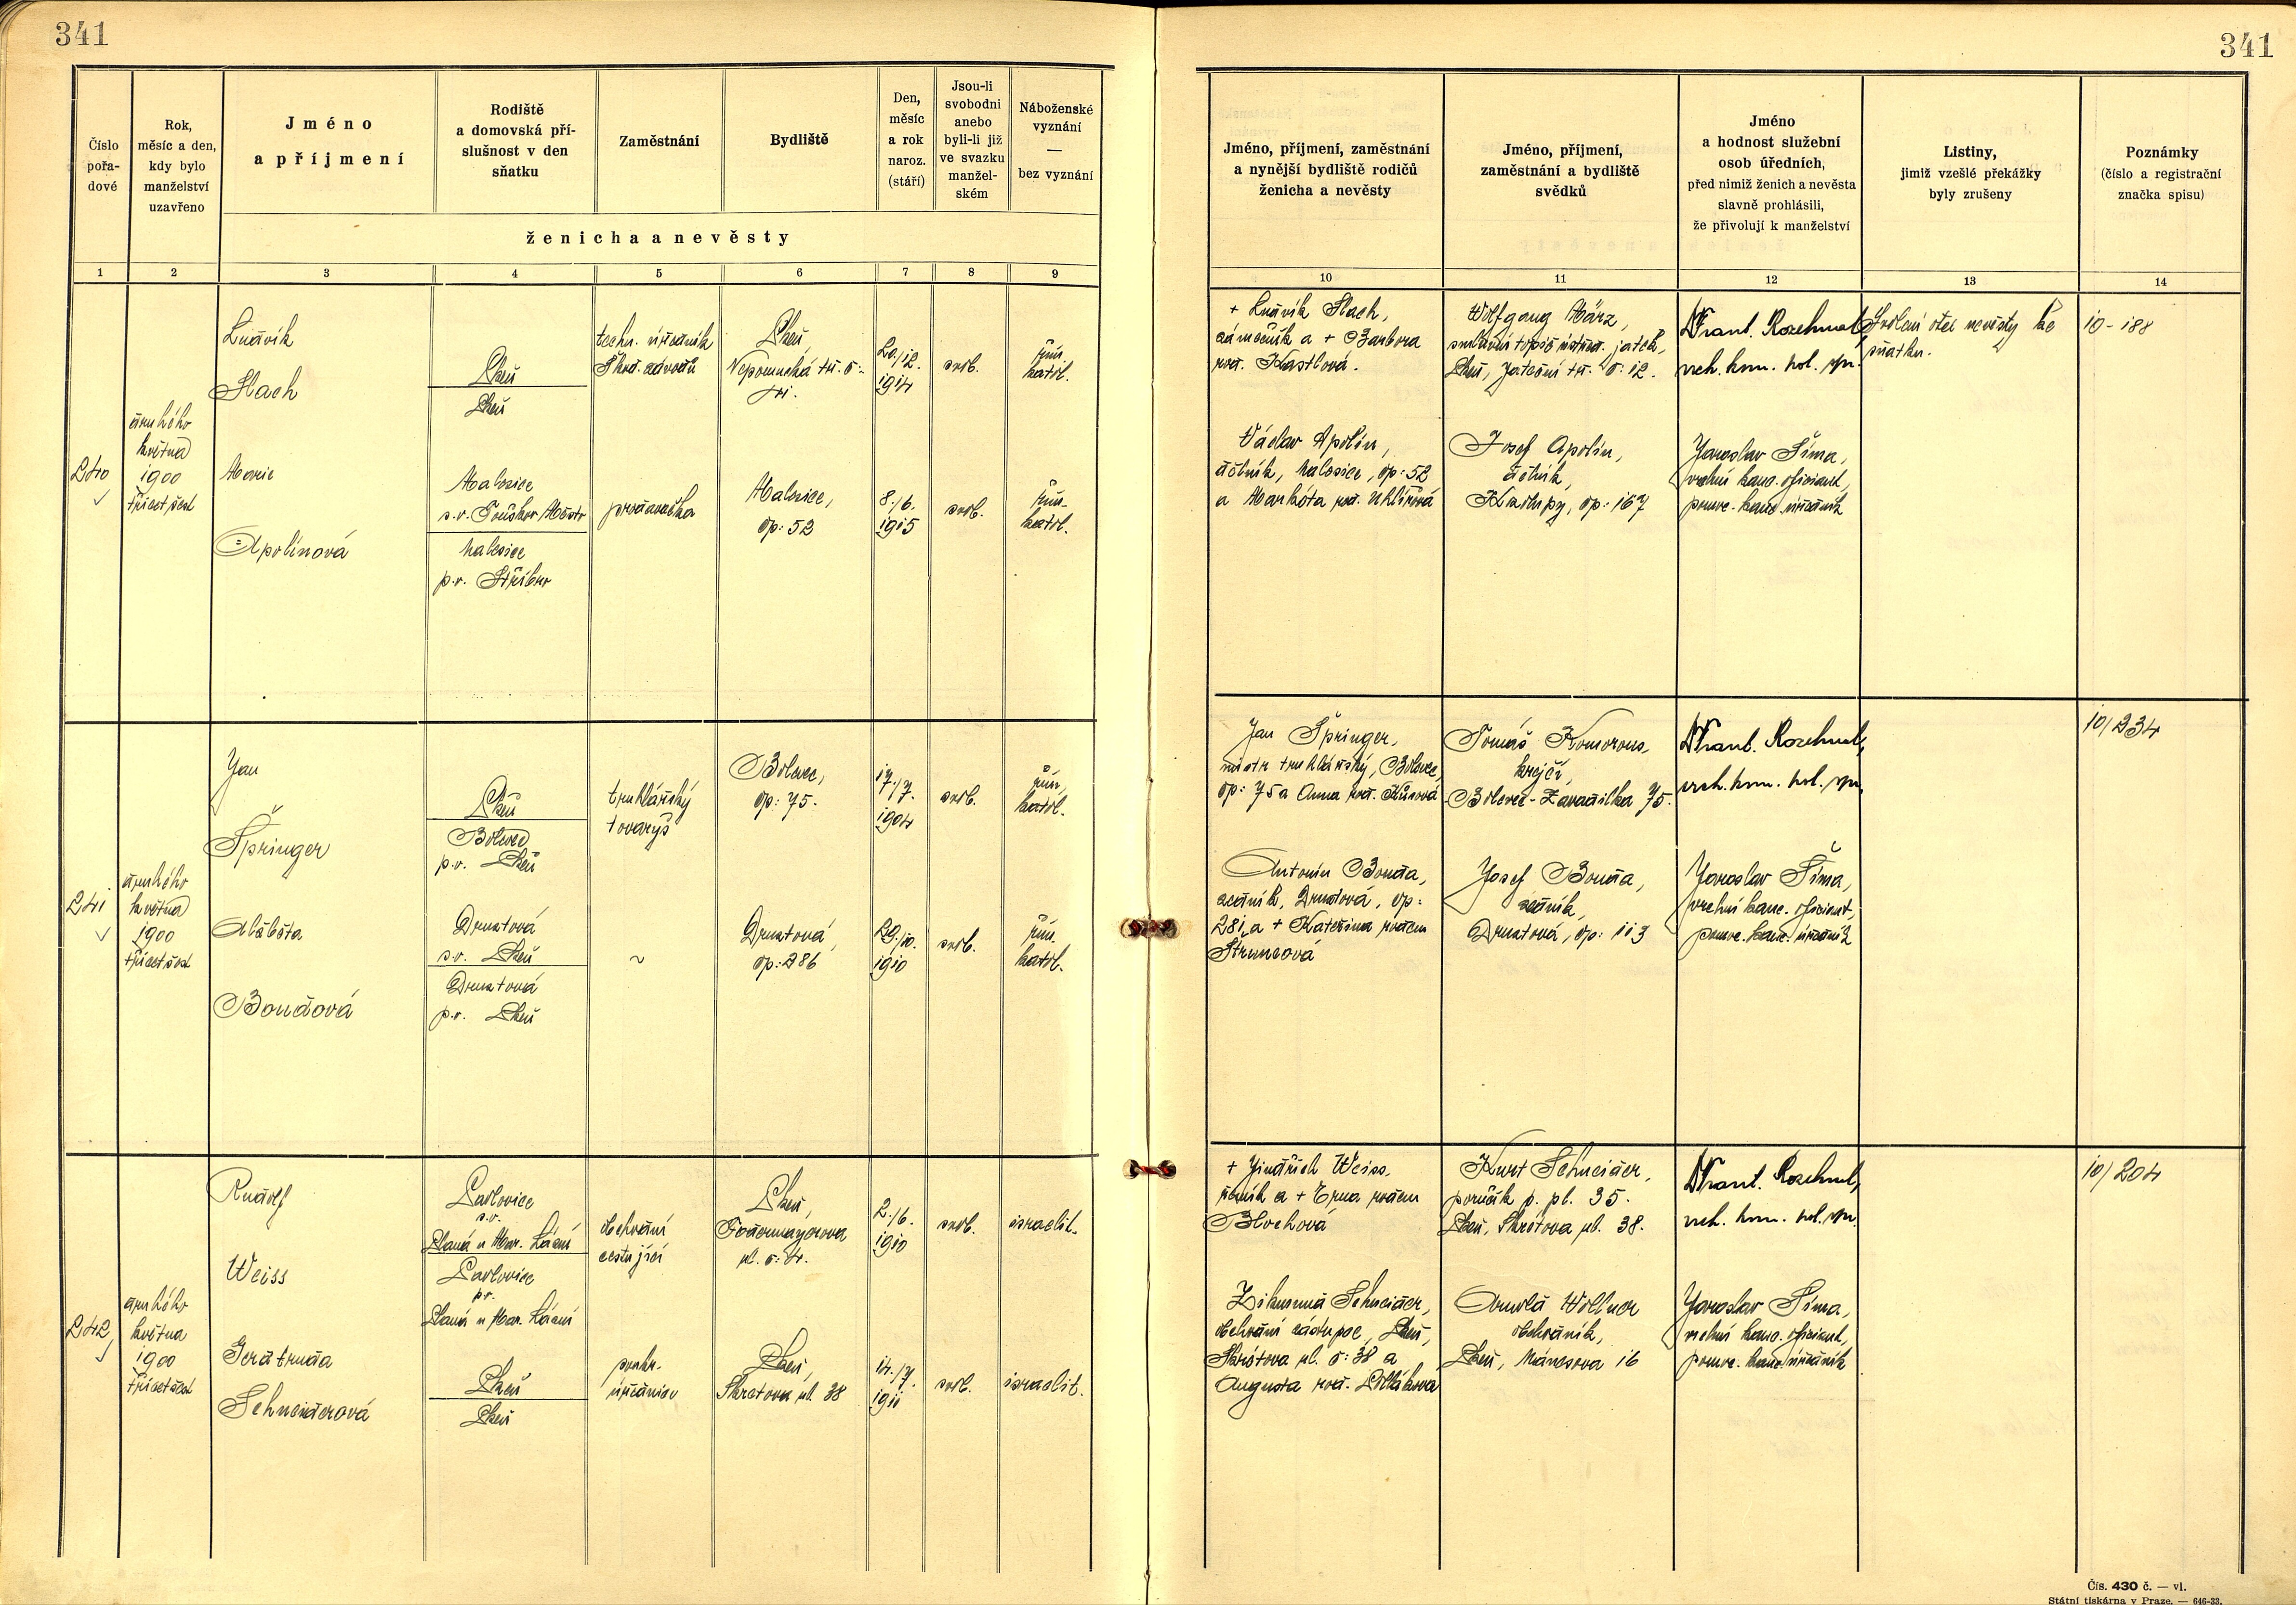 341
341
Číslo
pořa-
dové
Rok,
měsíc a den,
kdy bylo
manželství
uzavřeno
Jméno
a příjmení
Rodiště
a domovská pří-
slušnost v den
sňatku
Zaměstnání
Bydliště
Den,
měsíc
a rok
naroz.
(stáří)
Jsou-li
svobodni
anebo
byli-li již
ve svazku
manžel-
ském
Náboženské
vyznání
—
bez vyznání
ženicha a nevěsty
1 2 3 4 5 6 7 8 9
Jméno, příjmení, zaměstnání
a nynější bydliště rodičů
ženicha a nevěsty
Jméno, příjmení,
zaměstnání a bydliště
svědků
Jméno
a hodnost služební
osob úředních,
před nimiž ženich a nevěsta
slavně prohlásili,
že přivolují k manželství
Listiny,
jimiž vzešlé překážky
byly zrušeny
Poznámky
(číslo a registrační
značka spisu)
10 11 12 13 14
240
druhého
května
1900
třicet šest
Ludvík
Slach
Plzeň
Plzeň
techn. úředník
Škod. závodů
Plzeň,
Nepomucká tř. č.
20./12.
1914
svob.
řím.
katol.
+ Ludvík Slach,
zámečník a + Barbora
roz. Kastlová.
Wolfgang März,
topič ústřed. jatek,
Plzeň, Jateční tř. č: 12.
Frant. Rozehnal,
vrch. kom. pol. spr.
Svolení otce nevěsty ke
sňatku.
10-188
Marie
Apolínová
Malesice
s.o. Touškov Město
Malesice
p.o. Stříbro
prodavačka
Malesice,
čp: 52
8./6.
1915
svob.
řím.
katol.
Václav Apolín,
dělník, Malesice, čp: 52
a Markéta roz. Uhlířová
Josef Apolín,
dělník,
Kralupy, čp: 167
Jaroslav Šíma,
vrchní kanc. oficiant,
pomoc. kanc. úředník
241
druhého
května
1900
třicet šest
Jan
Špringer
Plzeň
Bolevec
p.o. Plzeň
truhlářský
tovaryš
Bolevec,
čp: 75.
17./7.
1904
svob.
řím.
katol.
Jan Špringer,
mistr truhlářský, Bolevec,
čp: 75 a Anna roz. Kůsová
Tomáš Komorous,
krejčí,
Bolevec-Zavadilka 75.
Frant. Rozehnal,
vrch. kom. pol. spr.
10/234
Alžběta
Boudová
Druztová
s.o. Plzeň
Druztová
p.o. Plzeň
~
Druztová
čp: 286
29./10.
1910
svob.
řím.
katol.
Antonín Bouda,
zedník, Druztová, čp:
281 a + Kateřina rozen
Struncová
Josef Bouda,
zedník,
Druztová, čp: 113
Jaroslav Šíma,
vrchní kanc. oficiant,
pomoc. kanc. úředník
242
druhého
května
1900
třicet šest
Rudolf
Weiss
Pavlovice
s.o.
Planá u Mar. Lázní
Pavlovice
p.o.
Planá u Mar. Lázní
obchodní
cestující
Plzeň,
Fodermayerova
ul. č: 4.
2./6.
1910
svob.
israelit.
+ Jindřich Weiss,
řezník a + Erna rozen
Blochová
Kurt Schneider,
poručík p. pl. 35.
Plzeň, Skrétova ul. 38.
Frant. Rozehnal,
vrch. kom. pol. spr.
10/204
Gertruda
Schneiderová
Plzeň
Plzeň
soukr.
úřednice
Plzeň,
Skretova ul. 38
14./7.
1911
svob.
israelit.
Zikmund Schneider,
obchodní zástupce, Plzeň,
Skrétova ul. č: 38 a
Augusta roz. Polláková
Arnold Wollner
obchodník,
Plzeň, Mánesova 16
Jaroslav Šíma,
vrchní kanc. oficiant,
pomoc. kanc. úředník
Čís. 430 č. — vl.
Státní tiskárna v Praze. — 646-33.